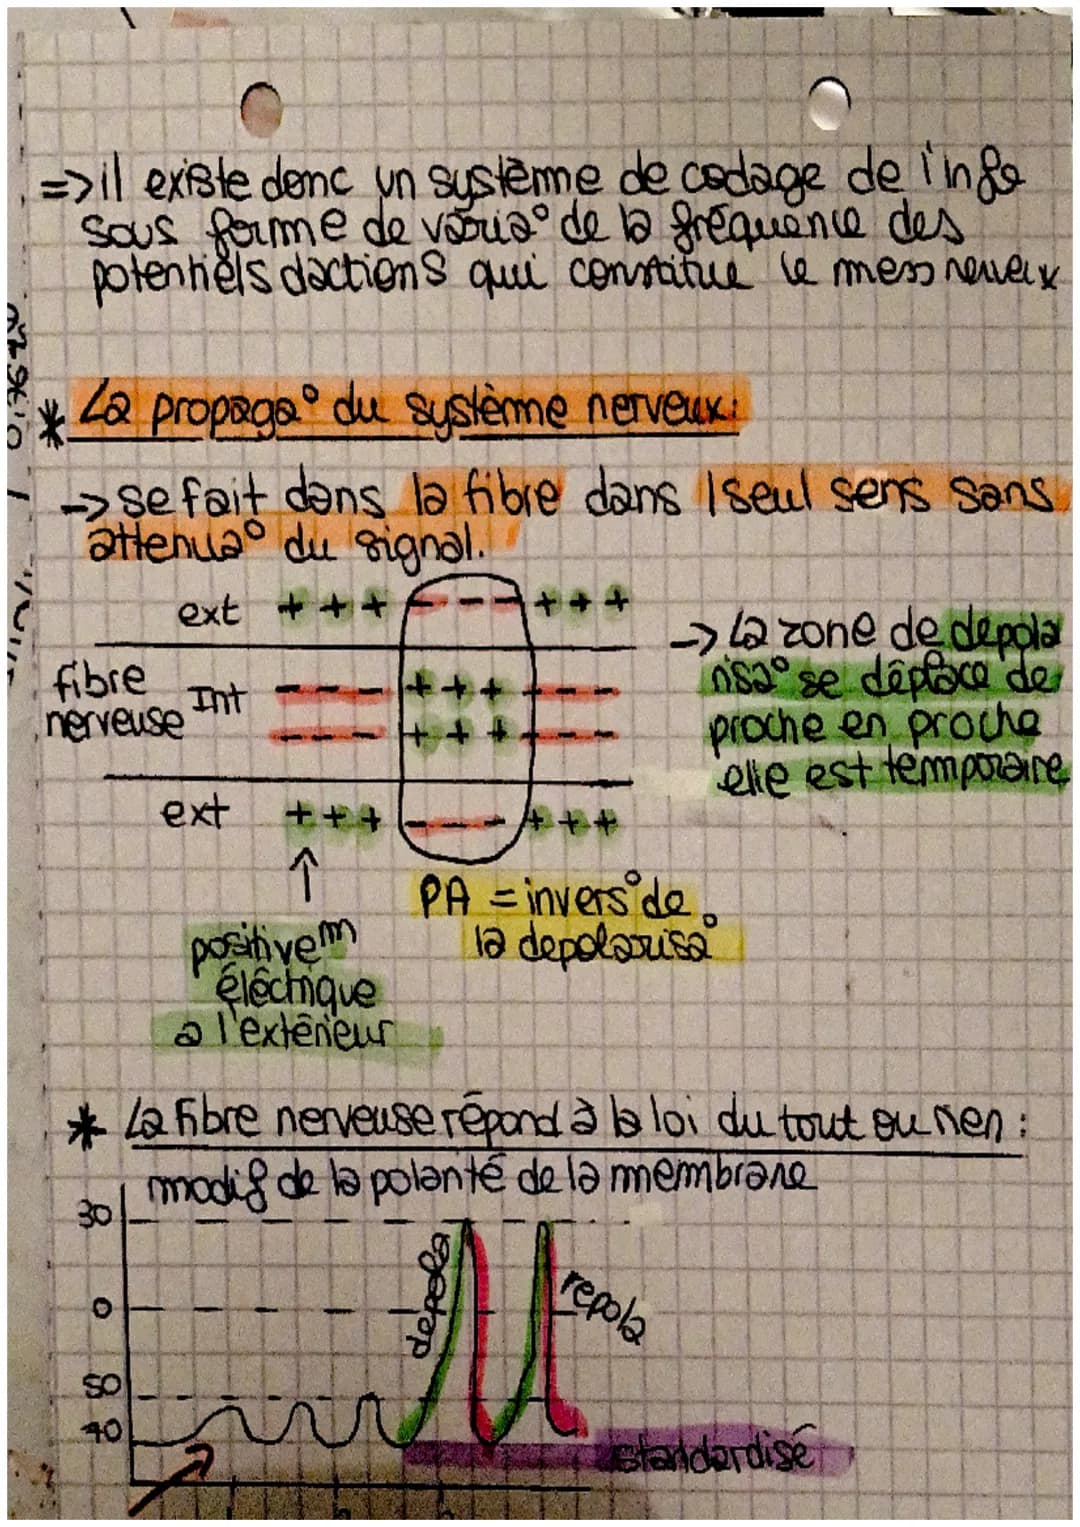 => il existe donc un système de codage de l'info
sous forme de varia° de la fréquence des
potentiels dactions qui constitue le mess nerveux
* La propaga° du système nerveux:
-> se fait dans la fibre dans 1 seul sens sans
attenua° du signal.
ext + + + - - - + + +
fibre
nerveuse
Int - - - + + + - - -
- - - + + + - - -
ext + + + - - - + + +
-> La zone de depola
risa° se déplace de
proche en proche
elle est temporaire
↑
positivem
éléctrique
a l'extérieur
PA = invers° de
la depolarisa°
* La fibre nerveuse répond à la loi du tout ou rien :
modif de la polarité de la membrane
30
0
50
70
depola
repola
standardisé